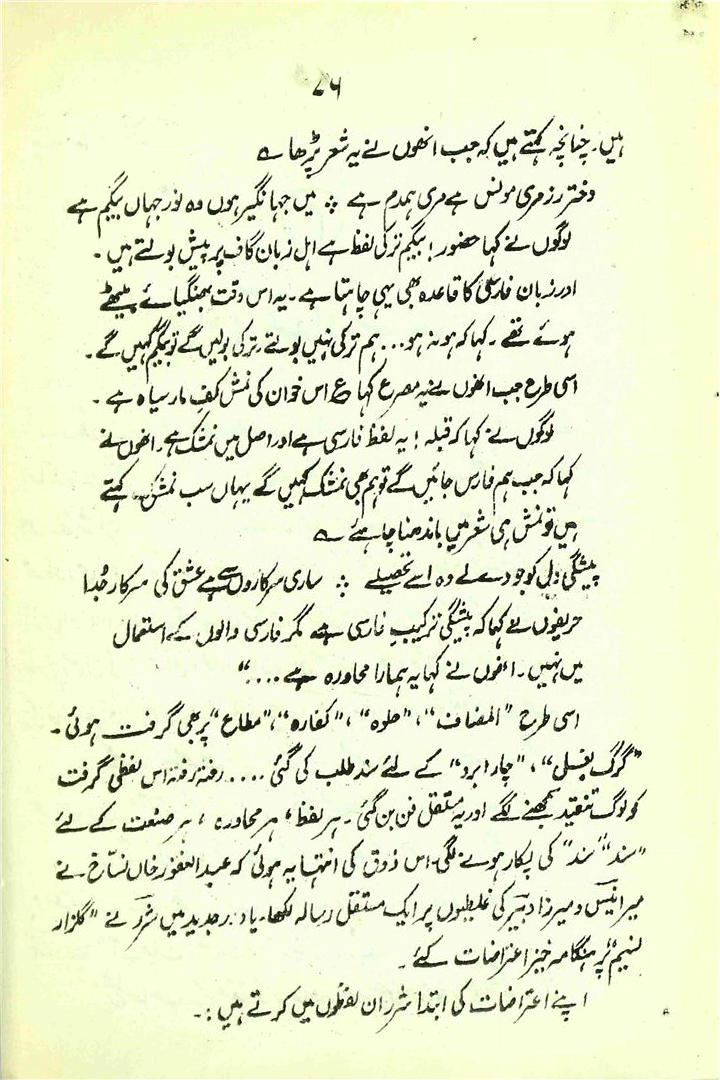 ۷۶
ہیں۔ چنانچہ کہتے ہیں کہ جب انھوں نے یہ شعر پڑھا ؎
دختر رز مری مونس ہے مری ہمدم ہے ؞ میں جہانگیر ہوں وہ نور جہاں بیگم ہے
لوگوں نے کہا حضور! بیگم ترکی لفظ ہے اہل زبان گاف پر پیش بولتے ہیں۔
اور زبان فارسی کا قاعدہ بھی یہی چاہتا ہے۔ یہ اس وقت بھنگیائے بیٹھے
ہوئے تھے۔ کہا کہ ہونہ ہو... ہم ترکی نہیں بولتے۔ ترکی بولیں گے تو بیگم کہیں گے۔
اسی طرح جب انھوں نے یہ مصرع کہا ع اس خوان کی نمش کف مار سیاہ ہے۔
لوگوں نے کہا کہ قبلہ! یہ لفظ فارسی ہے اور اصل میں نمشک ہے۔ انھوں نے
کہا کہ جب ہم فارس جائیں گے تو ہم بھی نمشک کہیں گے یہاں سب نمش کہتے
ہیں تو نمش ہی شعر میں باندھنا چاہئے ؎
پیشگی دل کو جو دے لے وہ اسے تحصیلے ؞ ساری سرکاروں سے ہے عشق کی سرکار جُدا
حریفوں نے کہا کہ پیشگی ترکیب فارسی ہے مگر فارسی والوں کے استعمال
میں نہیں۔ انھوں نے کہا یہ ہمارا محاورہ ہے....“
اسی طرح ”المضاف“، ”حلوہ“، ”کفارہ“، ”مطاع“ پر بھی گرفت ہوئی۔
”گرگ بغلی“، ”چار ابرو“ کے لئے سند طلب کی گئی .... رفتہ رفتہ اس لفظی گرفت
کو لوگ تنقید سمجھنے لگے اور یہ مستقل فن بن گئی۔ ہر لفظ، ہر محاورہ، ہر صنعت کے لئے
”سند“ ”سند“ کی پکار ہونے لگی۔ اس ذوق کی انتہا یہ ہوئی کہ عبدالغفور خاں نساخ۔ نے
میر انیس و میرزا دبیر کی غلطیوں پر ایک مستقل رسالہ لکھا۔ یا دور جدید میں شرر نے ”گلزار
نسیم“ پر ہنگامہ خیز اعتراضات کئے۔
اپنے اعتراضات کی ابتدا شرر ان لفظوں میں کرتے ہیں:۔